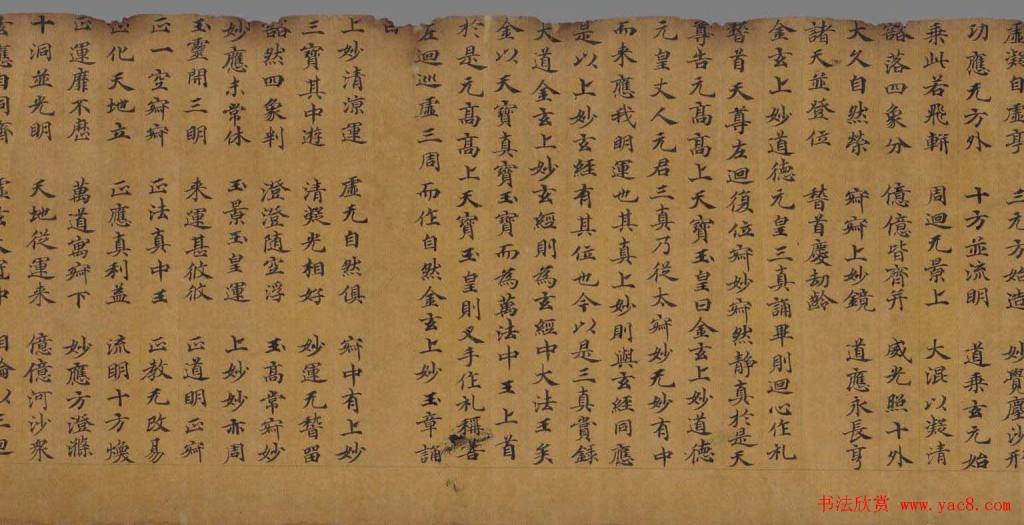 虛凝自虛亭　三元方始造　妙覺塵沙形
功應无方外　十方並流明　道乘玄元始
乘此若飛軿　周迴元景上　大混以凝清
豁落四象分　億億皆齊并　威光照十外
大久自然榮　寂寂上妙鏡　道應永長亨
諸天並登位　稽首慶劫齡
金玄上妙道德元皇三真誦畢則迴心作礼
稽首天尊左迴復位寂妙寂然静真於是天
尊告元髙髙上天寶玉皇曰金玄上妙道德
元皇丈人元君三真乃從太寂妙无妙有中
而来應我明運也其真上妙則與玄經同應
是以上妙玄經有其位也今以是三真賞録
大道金玄上妙玄經則為玄經中大法王矣
金以天寶真寶玉寶而為萬法中王上首
於是元髙髙上天寶玉皇則叉手作礼稱善
左迴巡虛三周而作自然金玄上妙玉章誦
曰
上妙清凉運　虛无自然俱　寂中有上妙
三寶其中遊　清凝光相好　妙運无稽留
豁然四象判　澄澄随空浮　玉髙常寂妙
妙應未常休　玉景玉皇運　上妙妙亦周
玉靈開三明　来運甚攸攸　正道明正寂
正一空寂寂　正法真中王　正教无改易
正化天地立　正應真利益　流明十方煥
正運靡不歷　萬道寓寂下　妙應方澄滌
十洞並光明　天地從運来　億億河沙衆
應自同齊
书法欣赏 www.yac8.com